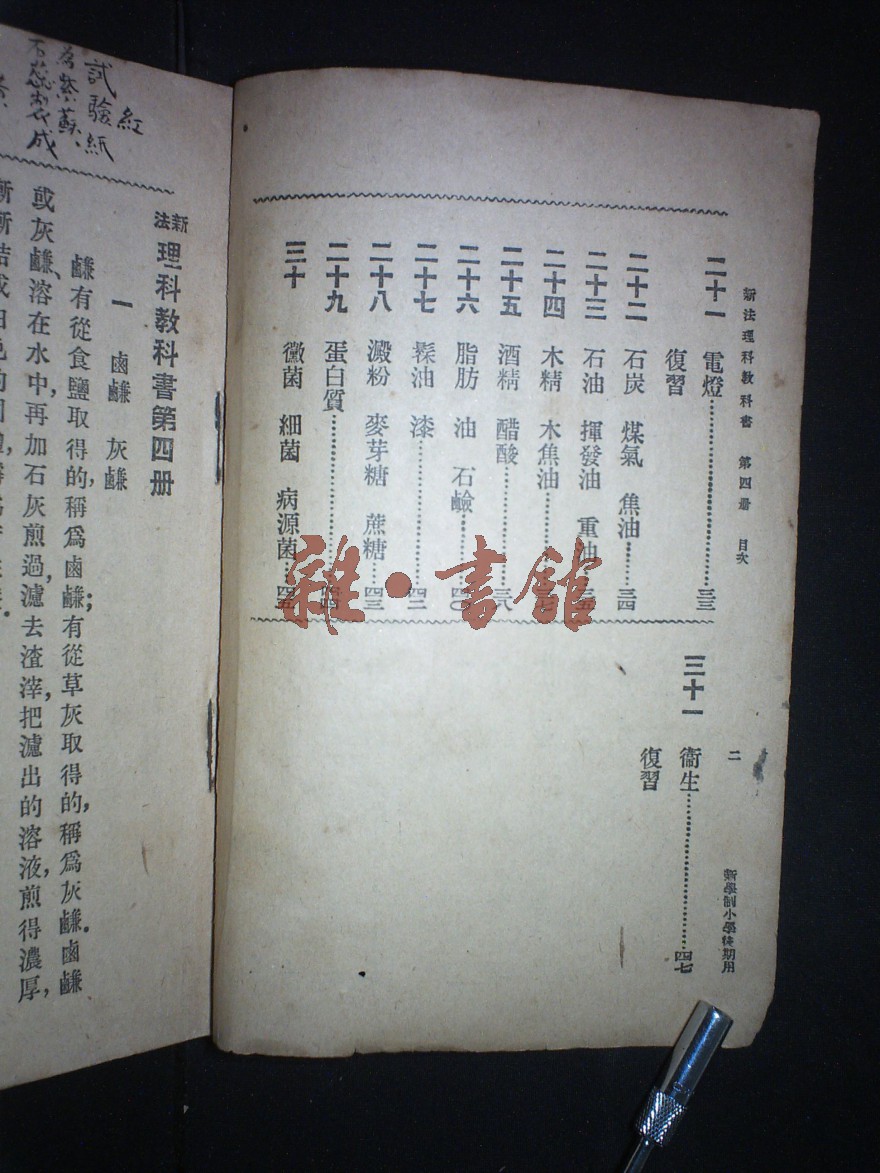 新法理科教科書 第四册 目次
二
新學制小學後期用
二十一 電燈……三三
復習
二十二 石炭 煤氣 焦油……三四
二十三 石油 揮發油 重油
二十四 木精 木焦油……
二十五 酒精 醋酸……三八
二十六 脂肪 油 石鹼……四〇
二十七 髹油 漆……四二
二十八 澱粉 麥芽糖 蔗糖…四三
二十九 蛋白質……四四
三十 黴菌 細菌 病源菌…四五
三十一 衞生……四七
復習
雜·書館
紅
試驗紙
為紫蘇、
石蕊製成
新法理科教科書第四册
一 鹵鹻 灰鹻
鹻有從食鹽取得的,稱爲鹵鹻;有從草灰取得的,稱爲灰鹻.鹵鹻
或灰鹻,溶在水中,再加石灰煎過,濾去渣滓,把濾出的溶液煎得濃厚,